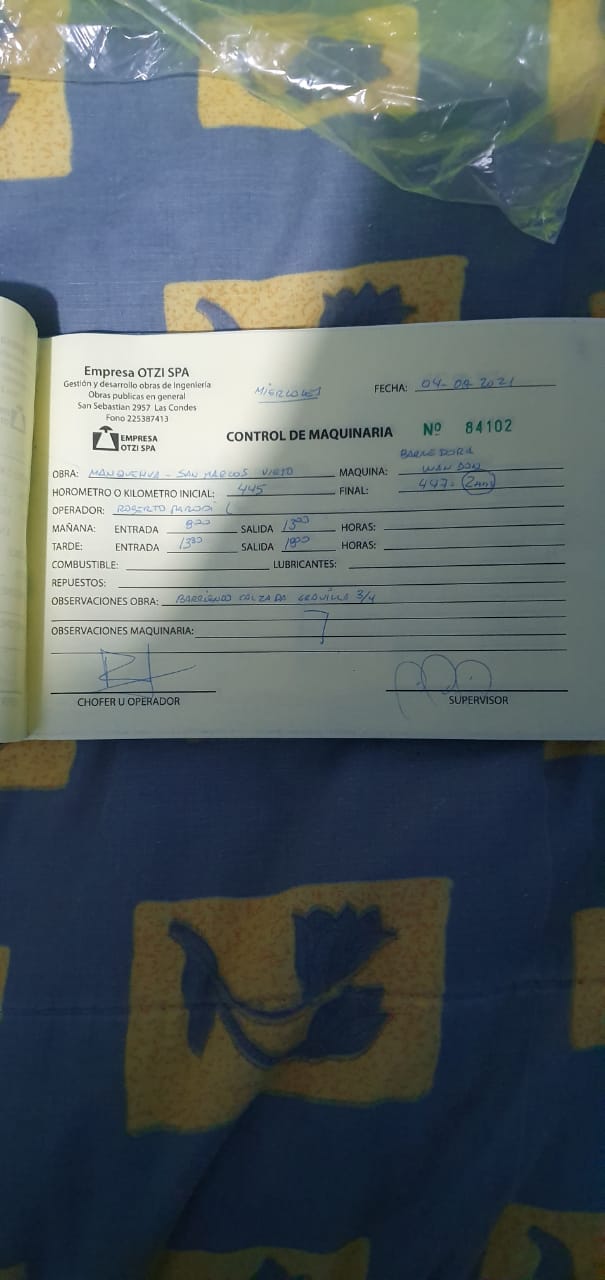 Empresa OTZI SPA
Gestión y desarrollo obras de Ingeniería
Obras publicas en general
San Sebastian 2957 Las Condes
Fono 225387413
EMPRESA OTZI SPA
MIERCOLES
FECHA: 04-08-2021
CONTROL DE MAQUINARIA Nº 84102
OBRA: MANQUEHUA - SAN MARCOS VIEJO MAQUINA: BARREDORA
HOROMETRO O KILOMETRO INICIAL: 445 FINAL: 447=
OPERADOR: ROBERTO
MAÑANA: ENTRADA 8:00 SALIDA 13:00 HORAS:
TARDE: ENTRADA 13:30 SALIDA 18:00 HORAS:
COMBUSTIBLE: LUBRICANTES:
REPUESTOS:
OBSERVACIONES OBRA: BARRIENDO CALZADA GRAVILLA 3/4
OBSERVACIONES MAQUINARIA:
CHOFER U OPERADOR SUPERVISOR